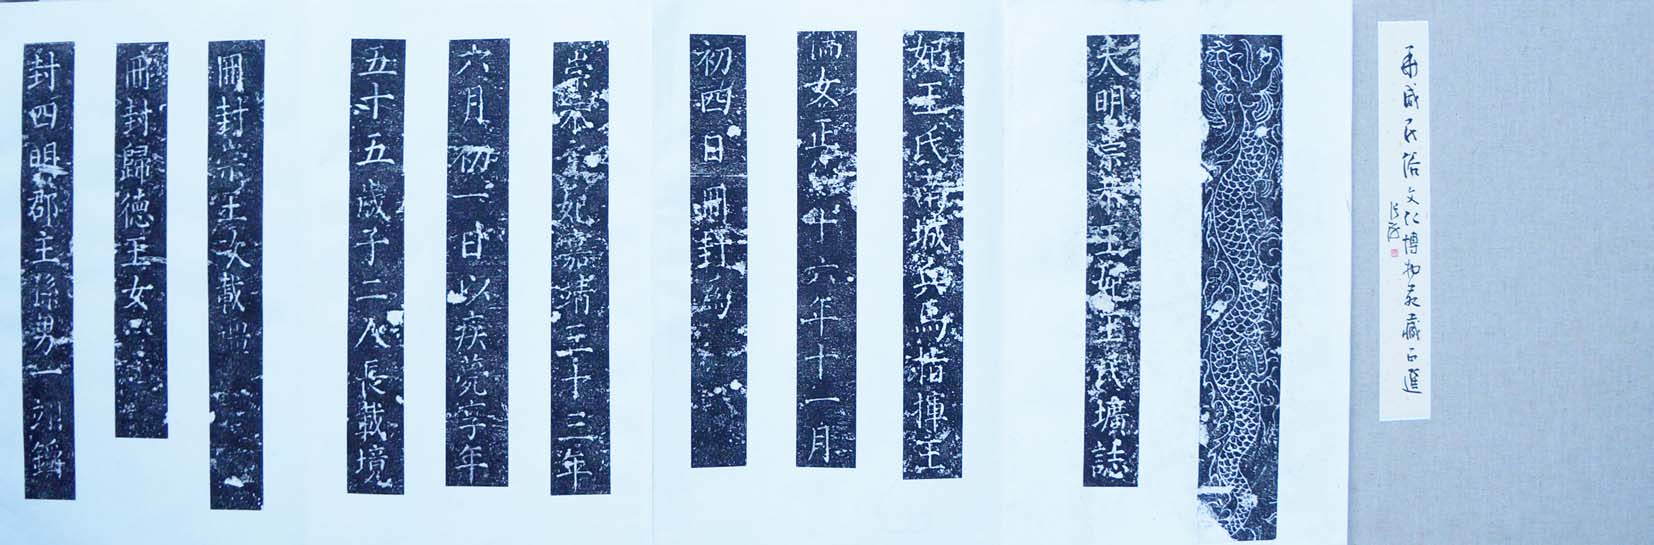 成民俗文化博物美藏品選
大明崇恭王妃王氏壙誌
妃王氏南城兵馬指揮王
女正十六年十一月
初四日冊封為
崇恭王妃嘉靖三十三年
六月初一日以疾薨享年
五十五歲子二人長載境
冊封崇王次載
冊封歸德王女
封四明郡主孫男一翊鏑